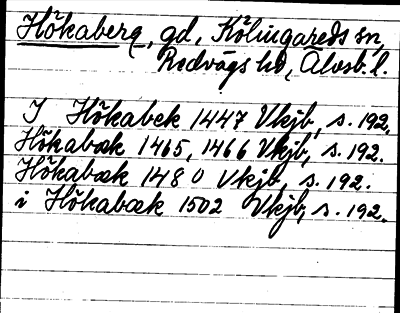 Hökaberg, gd, Kölingareds sn,
Redvägs hd, Älvsb. l.
I Hökabek 1447 Vkjb, s. 192,
Hökabæk 1465, 1466 Vkjb, s. 192.
Hökabæk 1480 Vkjb, s. 192.
i Hökabæk 1502 Vkjb, s. 192.